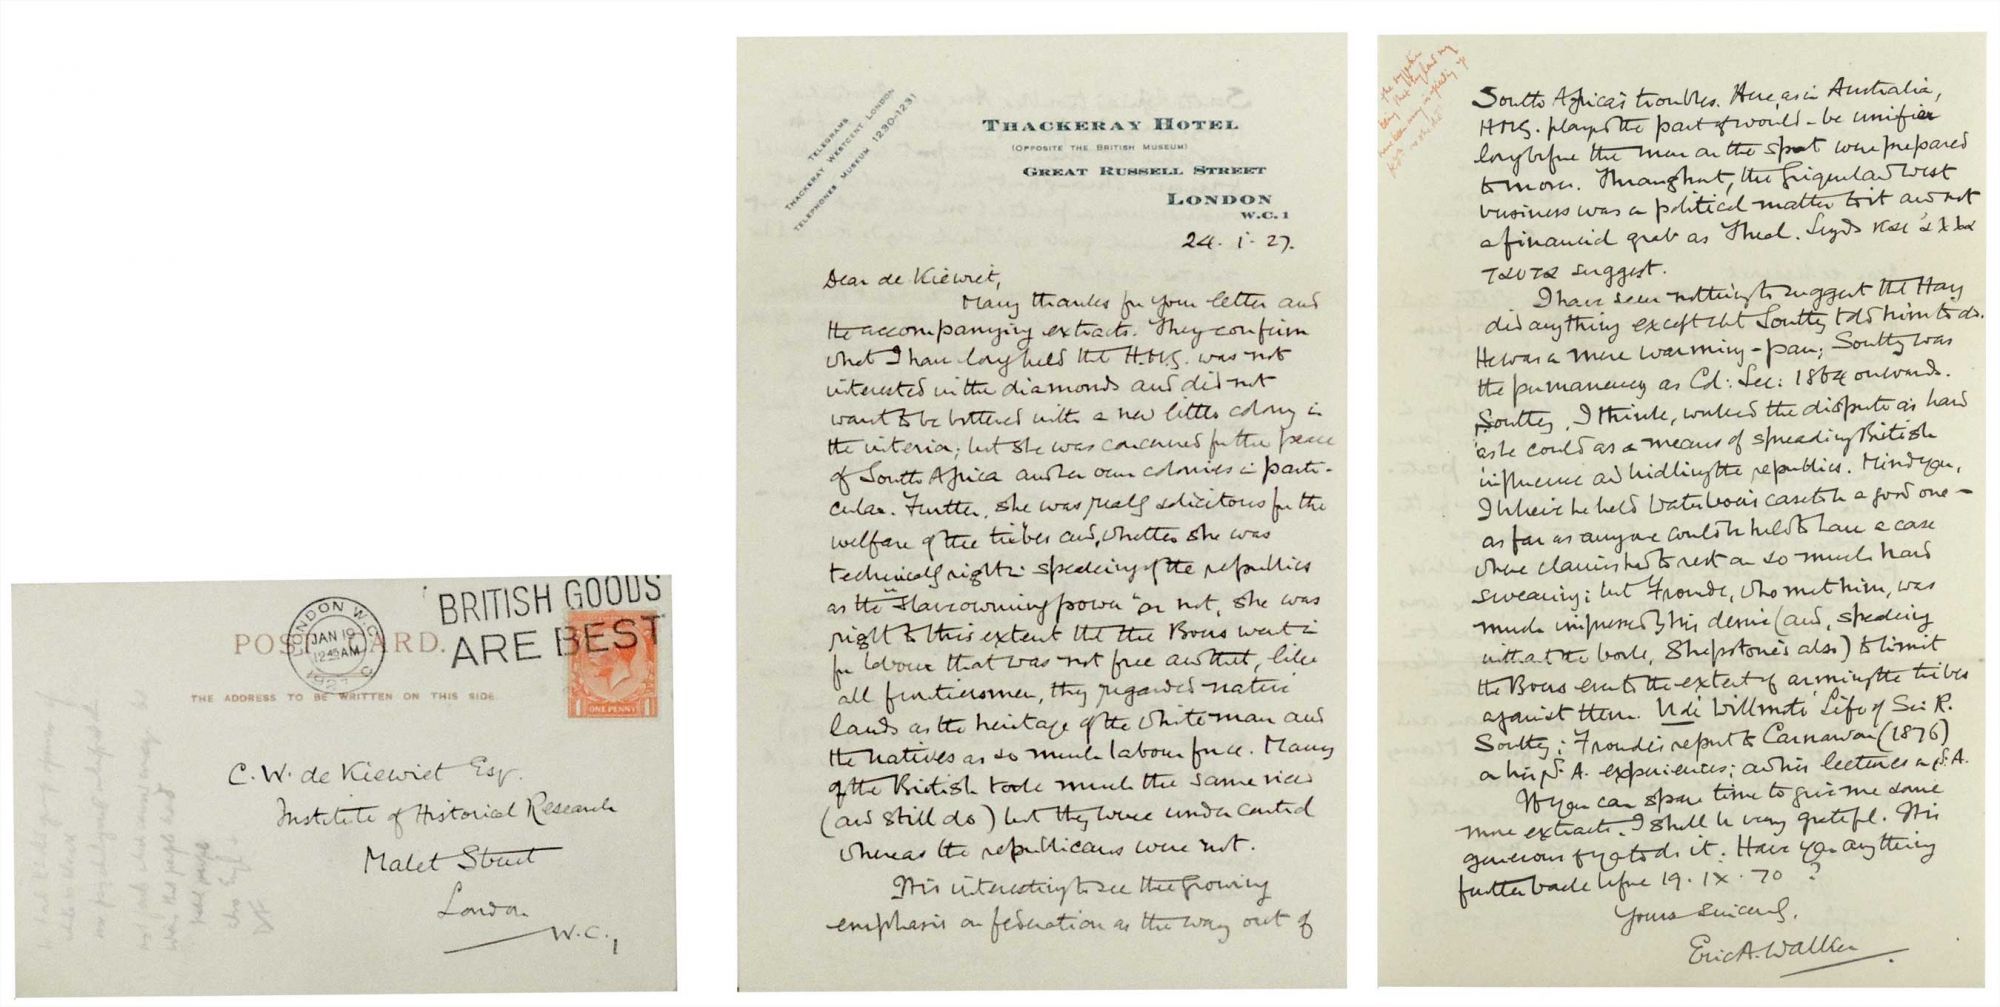 POST CARD.
THE ADDRESS TO BE WRITTEN ON THIS SIDE
LONDON W.C.
JAN 19
12.45 AM
1927
BRITISH GOODS
ARE BEST
ONE PENNY
C. W. de Kiewiet Esq.
Institute of Historical Research
Malet Street
London
W.C.1
TELEGRAMS
THACKERAY WESTCENT LONDON
TELEPHONES MUSEUM 1230-1231
THACKERAY HOTEL
(OPPOSITE THE BRITISH MUSEUM)
GREAT RUSSELL STREET
LONDON
W.C.1
24. i. 27.
Dear de Kiewiet,
Many thanks for your letter and
the accompanying extracts. They confirm
what I have long held tht H.M.G. was not
interested in the diamonds and did not
want to be bothered with a new little colony in
the interior; but she was concerned for the peace
of South Africa and her own colonies in parti-
cular. Further, she was really solicitous for the
welfare of the tribes and, whether she was
technically right in speaking of the republics
as the "slave owning power" or not, she was
right to this extent tht the Boers went in
for labour that was not free and tht, like
all frontiersmen, they regarded native
lands as the heritage of the white man and
the natives as so much labour force. Many
of the British took much the same view
(and still do) but they were under control
whereas the republicans were not.
It is interesting to see the growing
emphasis on federation as the way out of
South Africa's troubles. Here, as in Australia,
H.M.G. played the part of would-be unifier
long before the men on the spot were prepared
to move. Throughout, the Griqualand West
business was a political matter to it and not
a financial grab as Theal. Leyds
suggest.
I have seen nothing to suggest tht Hay
did anything except tht Southey told him to do.
He was a mere warming-pan; Southey was
the permanency as Col: Sec: 1864 onwards.
Southey, I think, worked the dispute as hard
as he could as a means of spreading British
influence and hindling the republics. Mind you,
I believe he held Waterboer's case to be a good one -
as far as anyone could be held to have a case
where claims had to rest on so much hard
swearing; but Froude, who met him, was
much impressed by his desire (and, speaking
without the book, Shepstone's also) to limit
the Boers even to the extent of arming the tribes
against them. Vide Wilmot's Life of Sir R.
Southey; Froude's report to Carnarvon (1876)
on his S.A. experiences; and his lectures on S.A.
If you can spare time to give me some
more extracts, I shall be very grateful. It is
generous of you to do it. Have you anything
further back before 19. IX. 70 ?
Yours sincerely,
Eric A. Walker